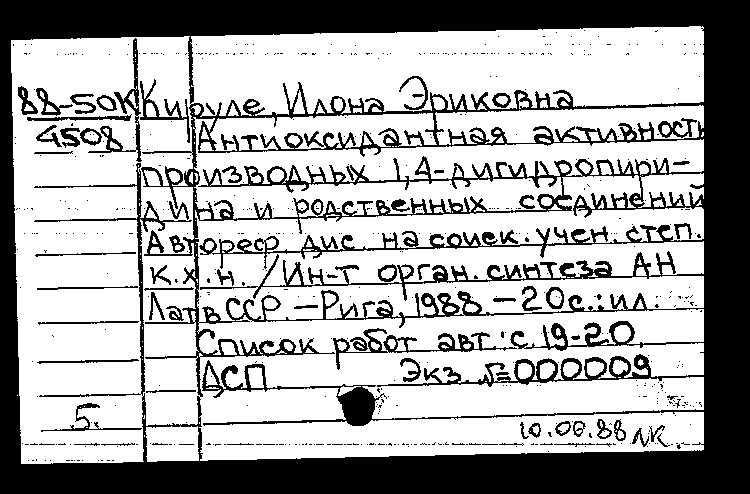 88-50К Кируле, Илона Эриковна
4508 Антиоксидантная активность
производных 1,4-дигидропири-
дина и родственных соединений
Автореф. дис. на соиск. учен. степ.
к.х.н. / Ин-т орган. синтеза АН
Латв ССР. – Рига, 1988. – 20 с.: ил.
Список работ авт.: с. 19-20.
ДСП. Экз. №000009.
5.
10.06.88 NK.